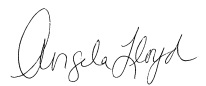 Angela Lloyd